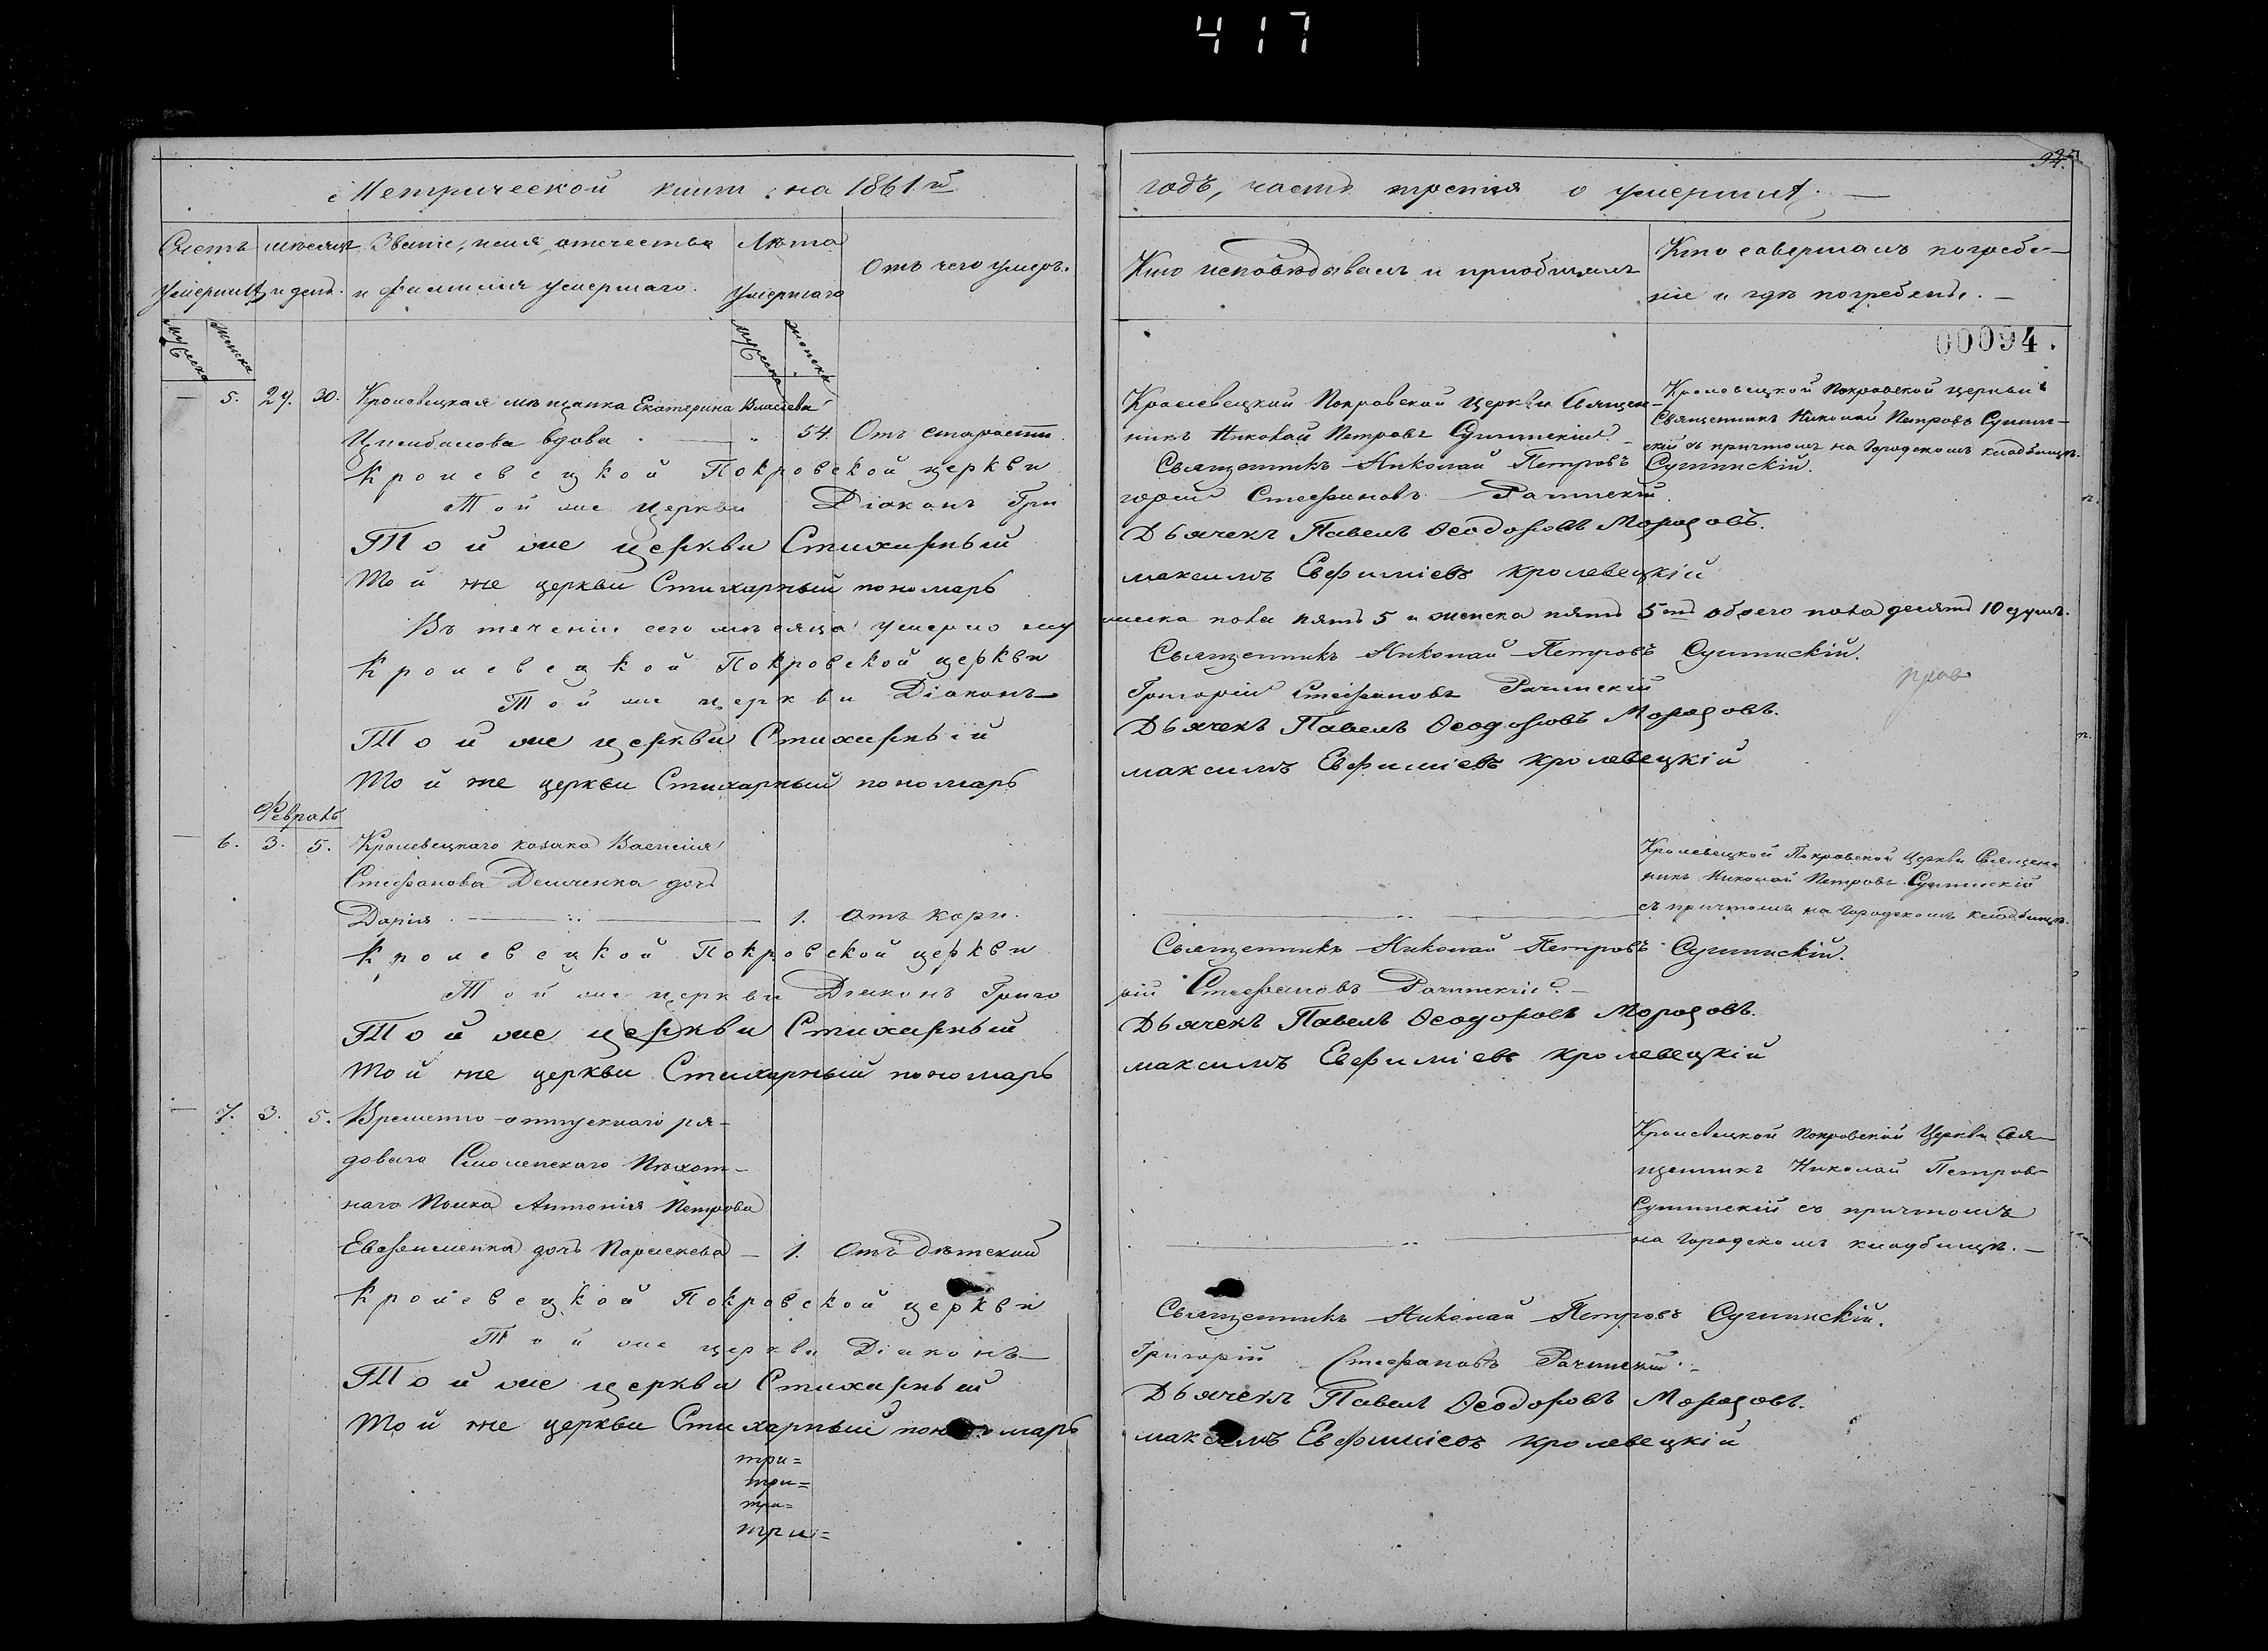 417
94.
Метрической книги на 1861.й
годъ, часть третья о умершихъ. —
Счетъ умершихъ
мѣсяцъ и день.
Званіе, имя, отечество
и фамилия умершаго.
Лѣта
умершаго
Отъ чего умеръ.
Кто исповѣдывалъ и пріобщалъ
Кто совершалъ погребе-
ніе и гдѣ погребены. —
мужеска
женска
мужеска
женска
00094.
— 5. 29. 30. Кролевецкая мѣщанка Екатерина Власіева
Цимбалова вдова. — " 54. Отъ старости.
Кролевецкой Покровской Церкви Священ-
никъ Николай Петровъ Сушинскій. —
Кролевецкой Покровской церкви
Священникъ Николай Петровъ Сушин-
скій съ причтомъ на Городскомъ кладбищѣ.
Кролевецкой Покровской церкви Священникъ Николай Петровъ Сушинскій.
Той же Церкви Діаконъ Григорій Стефановъ Рачинскій.
Той же церкви Стихарный Дьячекъ Павелъ Ѳеодоровъ Морозовъ.
Той же церкви Стихарный пономарь максимъ Евфиміевъ кролевецкій
Въ теченіи сего мѣсяца умерло мужеска пола пять 5 и женска пять 5ть обоего пола десять 10 душъ.
Кролевецкой Покровской церкви Священникъ Николай Петровъ Сушинскій.
Той же церкви Діаконъ — Григорій Стефановъ Рачинскій
Той же церкви Стихарный Дьячекъ Павелъ Ѳеодоровъ Морозовъ.
Той же церкви Стихарный пономарь максимъ Евфиміевъ кролевецкій
Февраль
— 6. 3. 5. Кролевецкаго козака Василія
Стефанова Демченка дочь
Дарія. — 1. Отъ кори.
Кролевецкой Покровской Церкви Священ-
никъ Николай Петровъ Сушинскій
съ причтомъ на Городскомъ кладбищѣ.
Кролевецкой Покровской церкви Священникъ Николай Петровъ Сушинскій.
Той же церкви Діаконъ Григорій Стефановъ Рачинскій. —
Той же церкви Стихарный Дьячекъ Павелъ Ѳеодоровъ Морозовъ.
Той же церкви Стихарный пономарь максимъ Евфиміевъ кролевецкій
— 7. 3. 5. Временно-отпускнаго ря-
доваго Смоленскаго Пѣхот-
наго Полка Антонія Петрова
Евфименка дочь Параскева — 1. Отъ дѣтской
Кролевецкой Покровской Церкви Свя-
щенникъ Николай Петровъ
Сушинскій съ причтомъ
на Городскомъ кладбищѣ. —
Кролевецкой Покровской церкви Священникъ Николай Петровъ Сушинскій.
Той же церкви Діаконъ — Григорій Стефановъ Рачинскій. —
Той же церкви Стихарный Дьячекъ Павелъ Ѳеодоровъ Морозовъ.
Той же церкви Стихарный пономарь максимъ Евфиміевъ кролевецкій
три=
три=
три=
три=